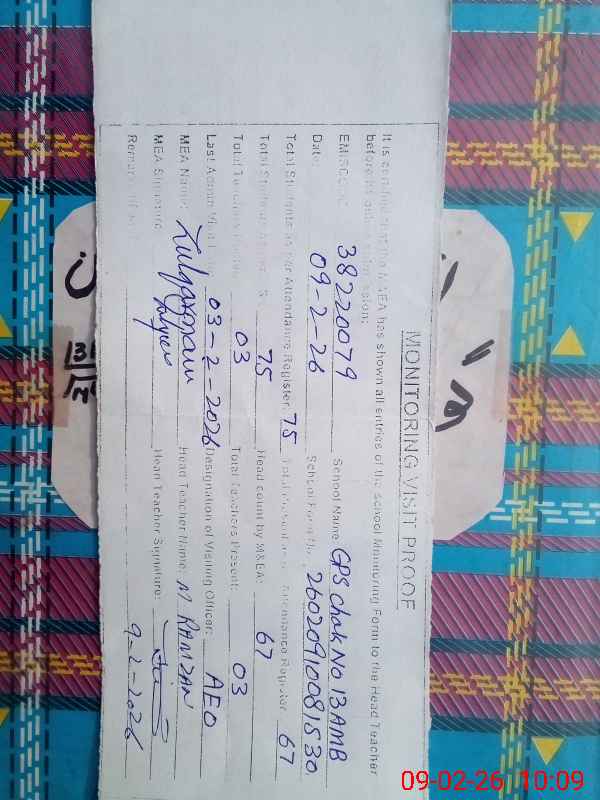 MONITORING VISIT PROOF
It is certified that the MEA has shown all entries of the school Monitoring Form to the Head Teacher
before its submission:
EMIS Code: 38220079 School Name: GPS Chak No 13 AMB
Date: 09-2-26 School Form No. 26020910081530
Total Students as per Attendance Register: 75 Total Present as per Attendance Register: 67
Total Student 75 Head count by M&EA: 67
Total Teachers 03 Total Teachers Present: 03
Last Admin Visit 03-2-2026 Designation of Visiting Officer: AEO
MEA Name: Head Teacher Name: M RAMZAN
MEA Signature: Head Teacher Signature:
Remarks 9-2-2026
09-02-26 10:09